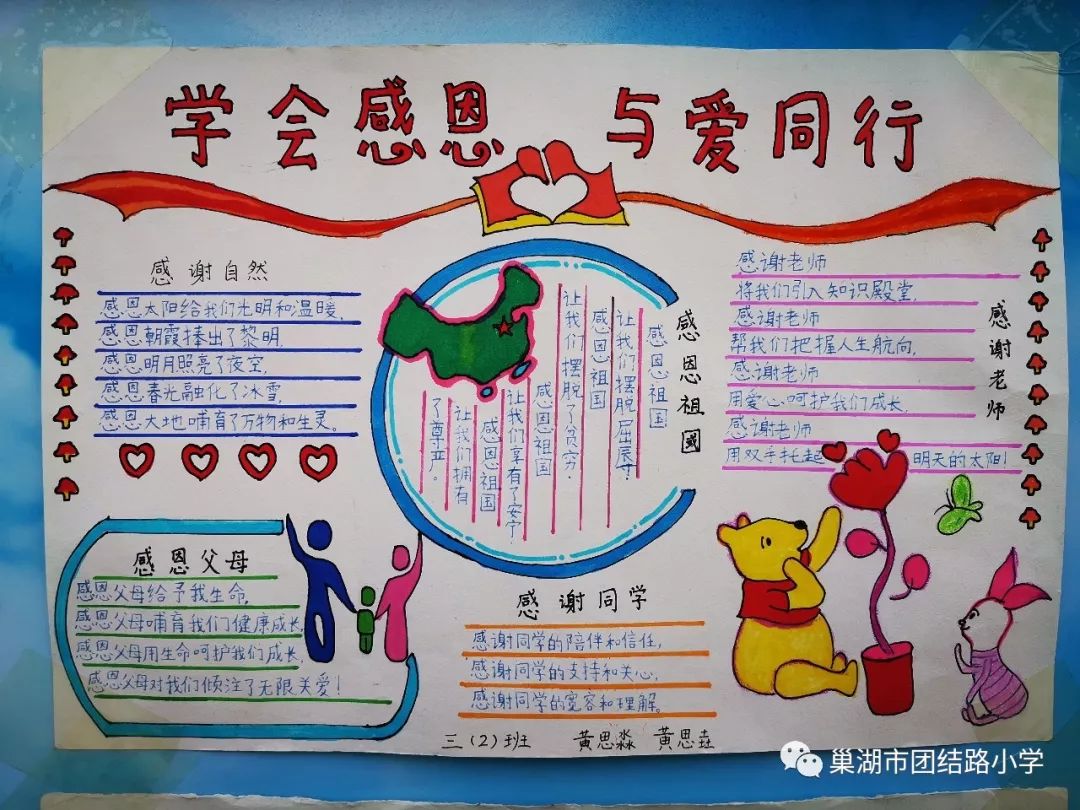 学会感恩 与爱同行
感谢自然
感恩太阳给我们光明和温暖,
感恩朝霞捧出了黎明,
感恩明月照亮了夜空,
感恩春光融化了冰雪,
感恩大地哺育了万物和生灵。
感恩祖国
感恩祖国
让我们摆脱屈辱。
感恩祖国
让我们摆脱了贫穷.
感恩祖国
让我们享有了安宁
感恩祖国
让我们拥有
了尊严。
感谢老师
感谢老师
将我们引入知识殿堂,
感谢老师
帮我们把握人生航向,
感谢老师
用爱心呵护我们成长,
感谢老师
用双手托起 明天的太阳!
感恩父母
感恩父母给予我生命,
感恩父母哺育我们健康成长,
感恩父母用生命呵护我们成长,
感恩父母对我们倾注了无限关爱!
感谢同学
感谢同学的陪伴和信任,
感谢同学的支持和关心,
感谢同学的宽容和理解。
三(2)班 黄思淼 黄思垚
巢湖市团结路小学